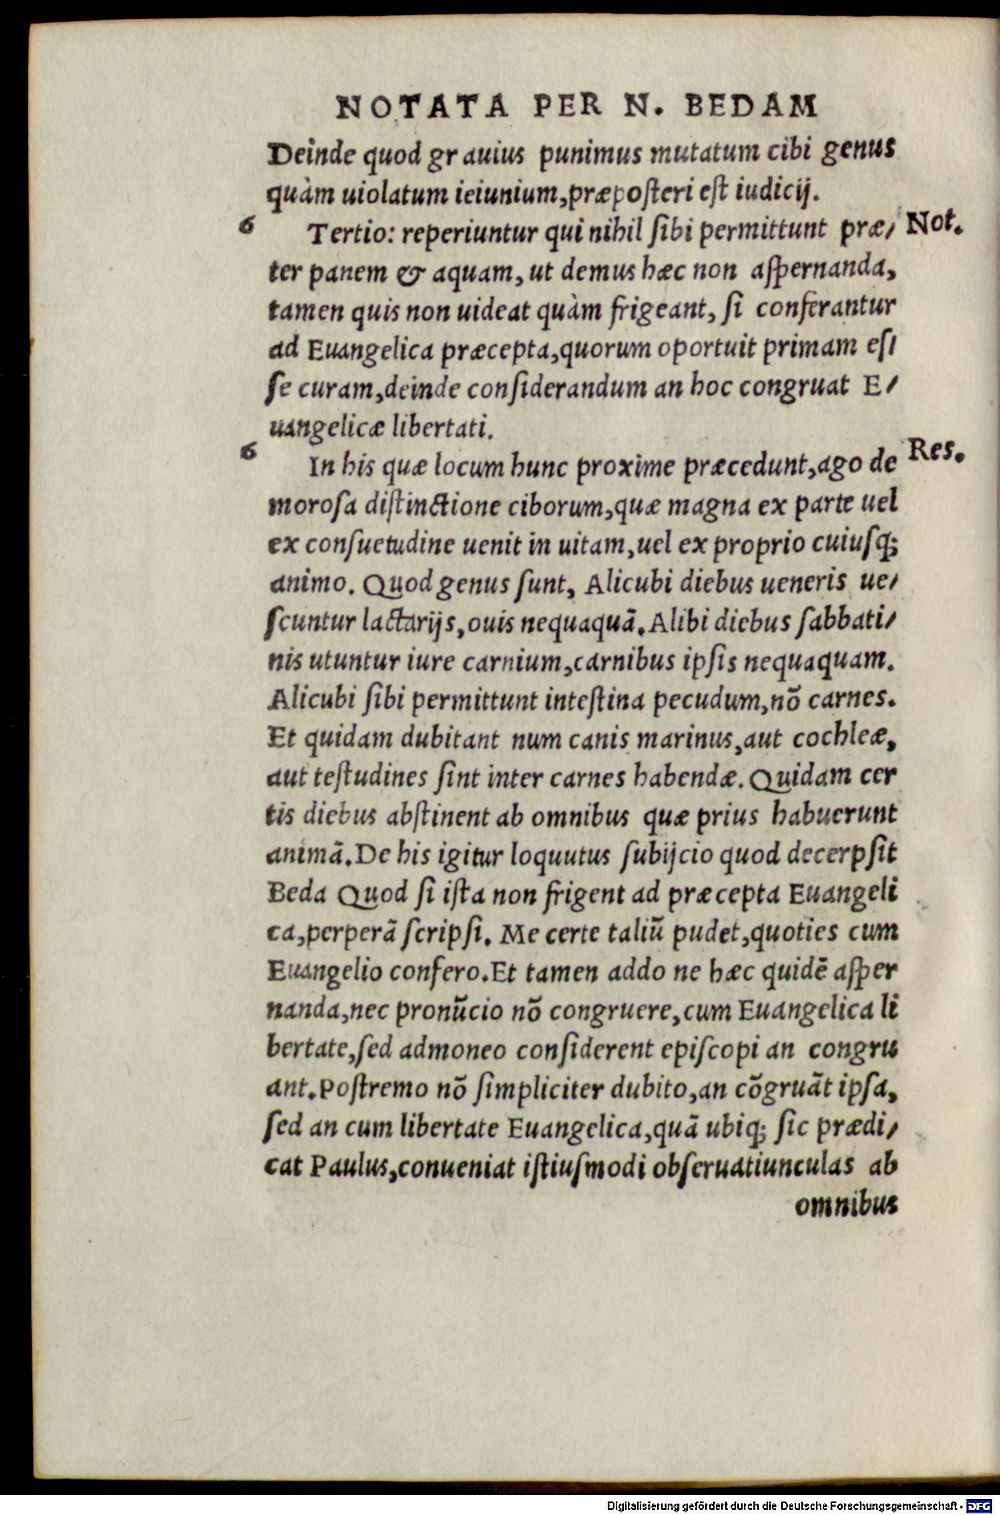 NOTATA PER N. BEDAM
Deinde quod grauius punimus mutatum cibi genus
quàm uiolatum ieiunium, præposteri est iudicij.
6 Tertio: reperiuntur qui nihil sibi permittunt præ/ Not.
ter panem & aquam, ut demus hæc non aspernanda,
tamen quis non uideat quàm frigeant, si conferantur
ad Euangelica præcepta, quorum oportuit primam es/
se curam, deinde considerandum an hoc congruat E/
uangelicæ libertati.
6 In his quæ locum hunc proxime præcedunt, ago de Res.
morosa distinctione ciborum, quæ magna ex parte uel
ex consuetudine uenit in uitam, uel ex proprio cuiusq;
animo. Quod genus sunt, Alicubi diebus ueneris ue/
scuntur lactarijs, ouis nequaquā. Alibi diebus sabbati/
nis utuntur iure carnium, carnibus ipsis nequaquam.
Alicubi sibi permittunt intestina pecudum, nō carnes.
Et quidam dubitant num canis marinus, aut cochleæ,
aut testudines sint inter carnes habendæ. Quidam cer
tis diebus abstinent ab omnibus quæ prius habuerunt
animā. De his igitur loquutus subijcio quod decerpsit
Beda Quod si ista non frigent ad præcepta Euangeli
ca, perperā scripsi. Me certe taliū pudet, quoties cum
Euangelio confero. Et tamen addo ne hæc quidē asper
nanda, nec pronūcio nō congruere, cum Euangelica li
bertate, sed admoneo considerent episcopi an congru
ant. Postremo nō simpliciter dubito, an cōgruāt ipsa,
sed an cum libertate Euangelica, quā ubiq; sic prædi/
cat Paulus, conueniat istiusmodi obseruatiunculas ab
omnibus
Digitalisierung gefördert durch die Deutsche Forschungsgemeinschaft - DFG